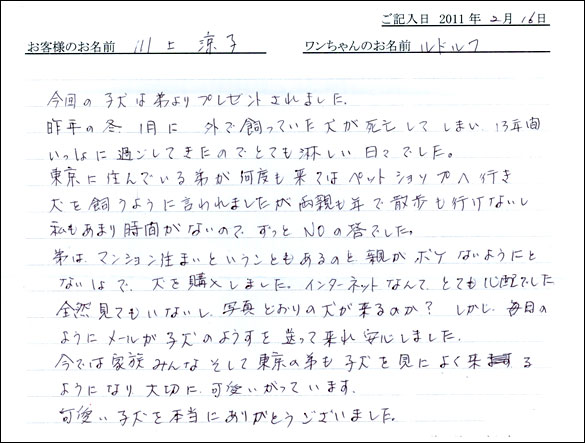 ご記入日 2011年2月16日
お客様のお名前 川上 涼子 ワンちゃんのお名前 ルドルフ
今回の子犬は弟よりプレゼントされました。
昨年の冬 1月に 外で飼っていた犬が死亡してしまい 13年間
いっしょに過ごしてきたのでとても淋しい日々でした。
東京に住んでいる弟が何度も来てはペットショップへ行き
犬を飼うように言われましたが両親も年で散歩も行けないし
私もあまり時間がないので、ずっとNOの答でした。
弟は、マンション住まいということもあるのと 親がボケないようにと
ないしょで、犬を購入しました。インターネットなんて、とても心配でした
全然見てもいないし、写真どおりの犬が来るのか? しかし、毎日の
ようにメールが子犬のようすを送って来れ安心しました。
今では家族みんなそして東京の弟も子犬を見によく来る
ようになり大切に、可愛いがっています。
可愛い子犬を本当にありがとうございました。